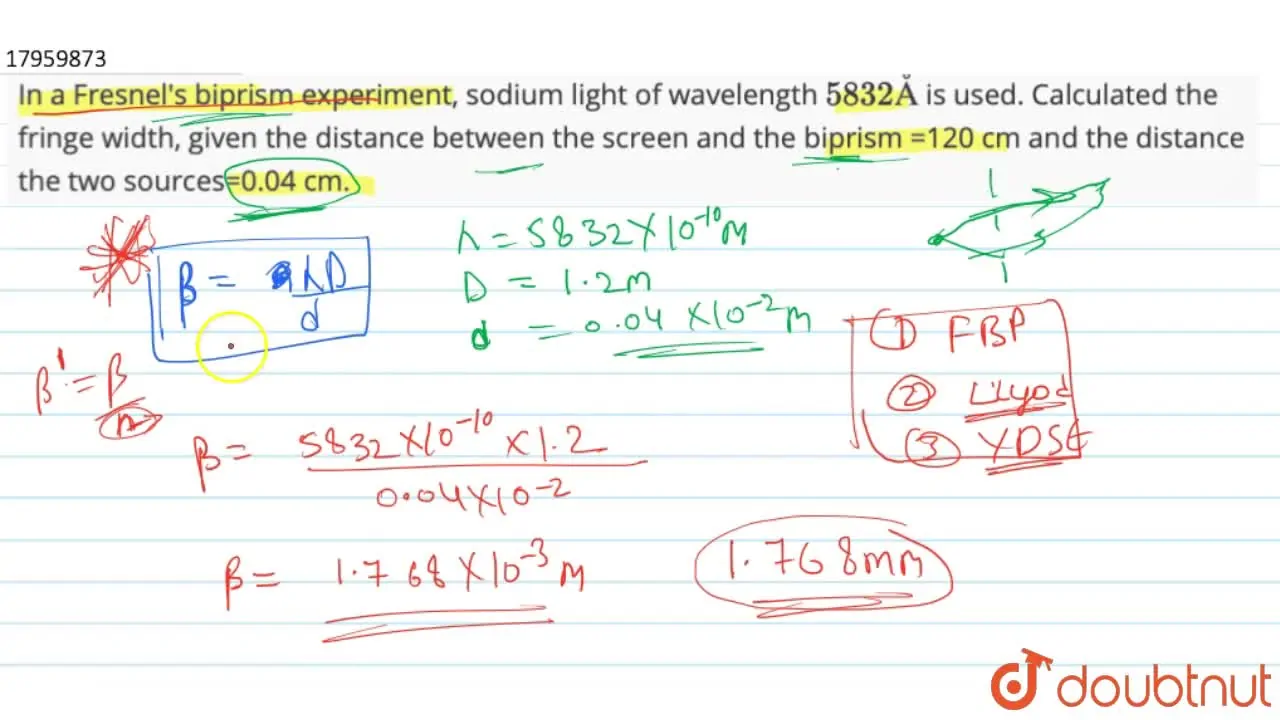 17959873
In a Fresnel's biprism experiment, sodium light of wavelength 5832Å is used. Calculated the
fringe width, given the distance between the screen and the biprism =120 cm and the distance
the two sources=0.04 cm.
λ = 5832 × 10⁻¹⁰ m
D = 1.2 m
d = 0.04 × 10⁻² m
β = λD/d
① FBP
② Llyod
③ YDSE
β' = β/n
β = 5832 × 10⁻¹⁰ × 1.2 / 0.04 × 10⁻²
β = 1.768 × 10⁻³ m
1.768 mm
doubtnut